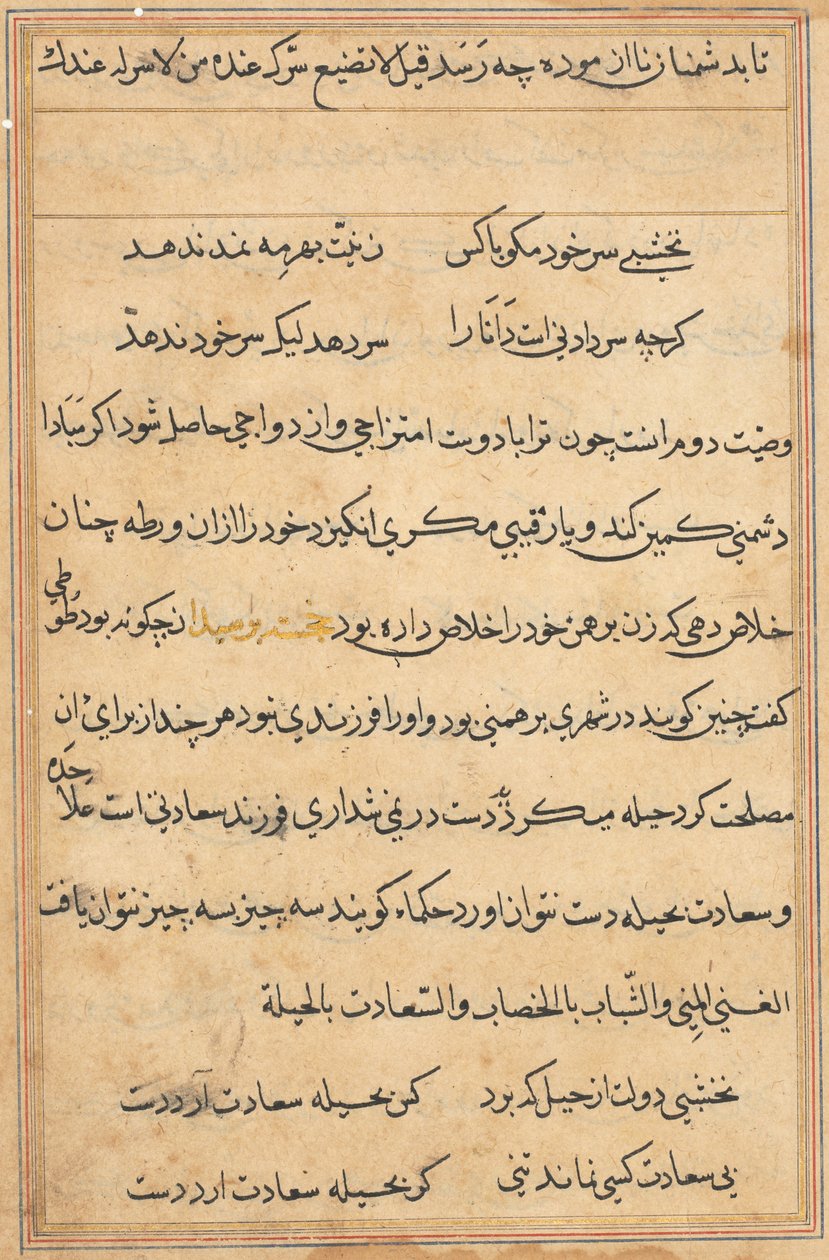 تا بدشمنان نا ازموده چه رَسَد قیل لا تضیع سرّک عنده من لا سر له عندك
نخشبی سر خود مکو با کس زینت بهر مه نمد ندهد
کرچه سر دادنی است دَانَا را سر دهد لیک سر خود ندهد
وصیّت دوم اینست چون ترا با دوست امتزاجی و ازدواجی حاصل شود اکر مَبَادا
دشمنی کمین کند و یا رقیبی مکري انکیزد خود را ازان ورطه چنان
خلاص دهی که زن برهمن خود را خلاص داده بود خجسته پرسید ان چکونه بود طُوطی
کفت چنین کویند در شهري برهمنی بود و او را فرزندي نبود هر چند از براي ان
مصلحت کرد حیله میکرد دست در نمی شد اري فرزند سعادتی است علاحده
و سعادت بحیله دست نتوان اورد حکماء کویند سه چیز بسه چیز نتوان یافت
الغني المني والشّباب بالخضاب والسّعادت بالحیلة
نخشبی دولت از حیل که برد کس بحیله سعادت آرد دست
بی سعادت کسی نماند تنی کر بحیله سعادت ارد دست